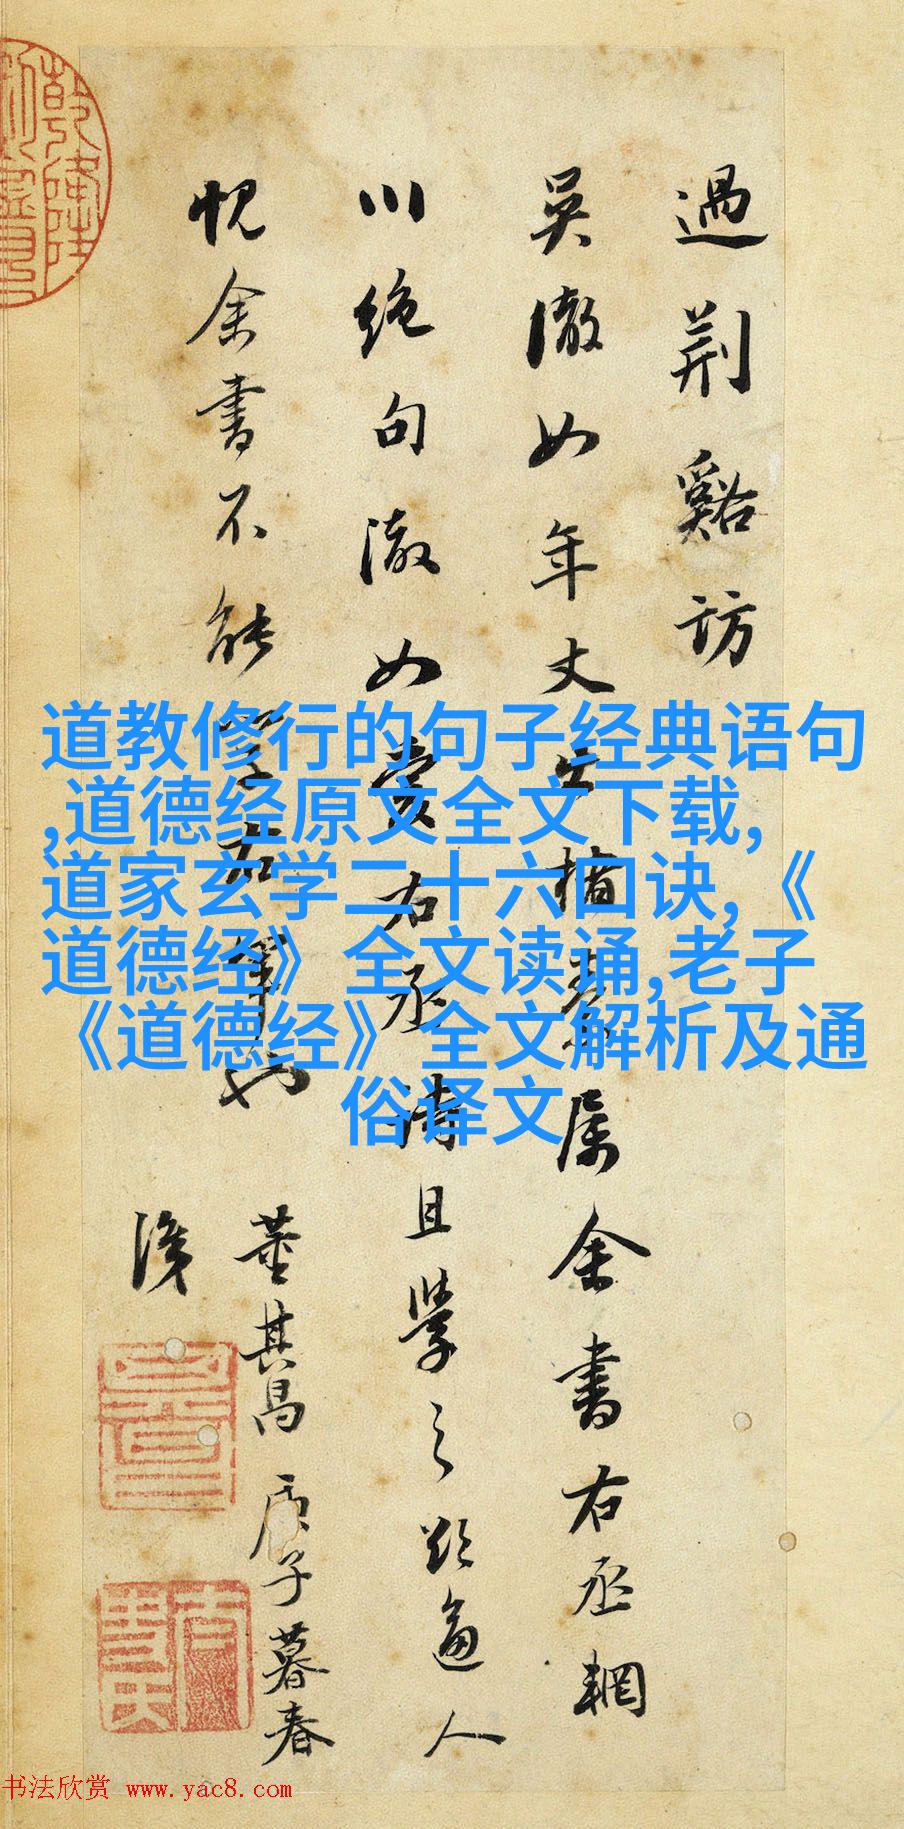 過荊谿訪
吳澈如年丈出楮素屬余書右丞輞
川絕句澈如右丞詩且學之欲逼人
愧余書不能學右軍也
董其昌庚子暮春
道教修行的句子经典语句
,道德经原文全文下载,
道家玄学二十六口诀,《
道德经》全文读诵,老子
《道德经》全文解析及通
俗译文
书法欣赏 www.yac8.com